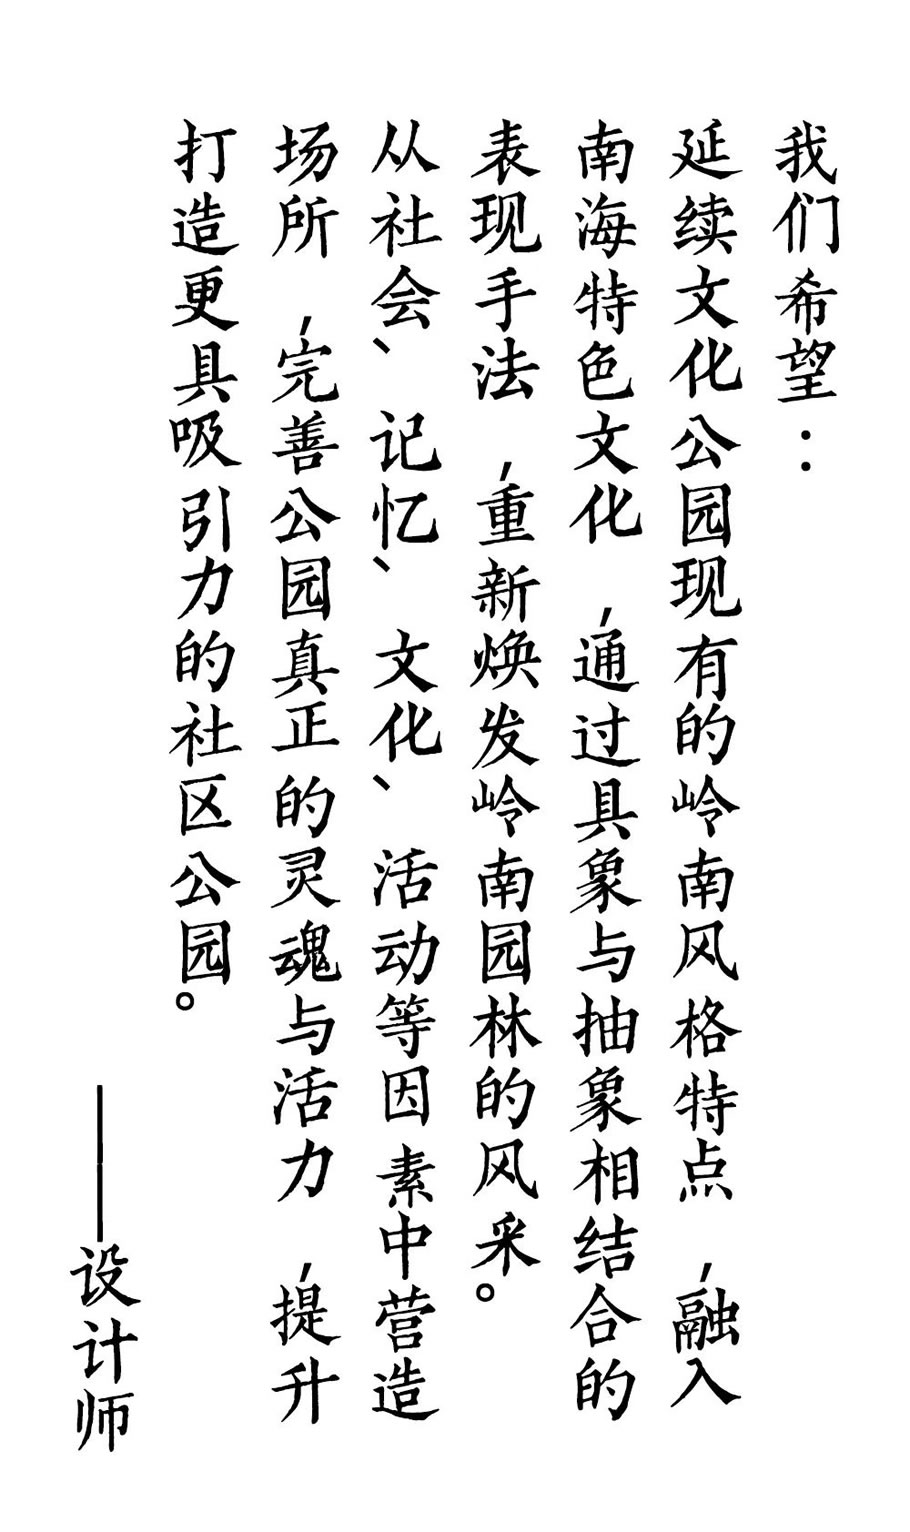 我们希望：
延续文化公园现有的岭南风格特点，融入
南海特色文化，通过具象与抽象相结合的
表现手法，重新焕发岭南园林的风采。
从社会、记忆、文化、活动等因素中营造
场所，完善公园真正的灵魂与活力，提升
打造更具吸引力的社区公园。
——设计师